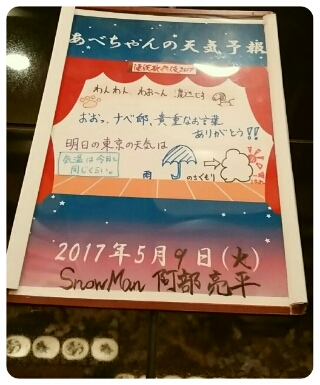 あべちゃんの天気予報
滝沢歌舞伎2017
わんわん、わお〜ん 滝沢です
おおっ、ナベ邸、貴重なお言葉
ありがとう!!
明日の東京の天気は
気温は今日と
同じくらい。
雨
のちくもり
2017年5月9日(火)
SnowMan 阿部亮平